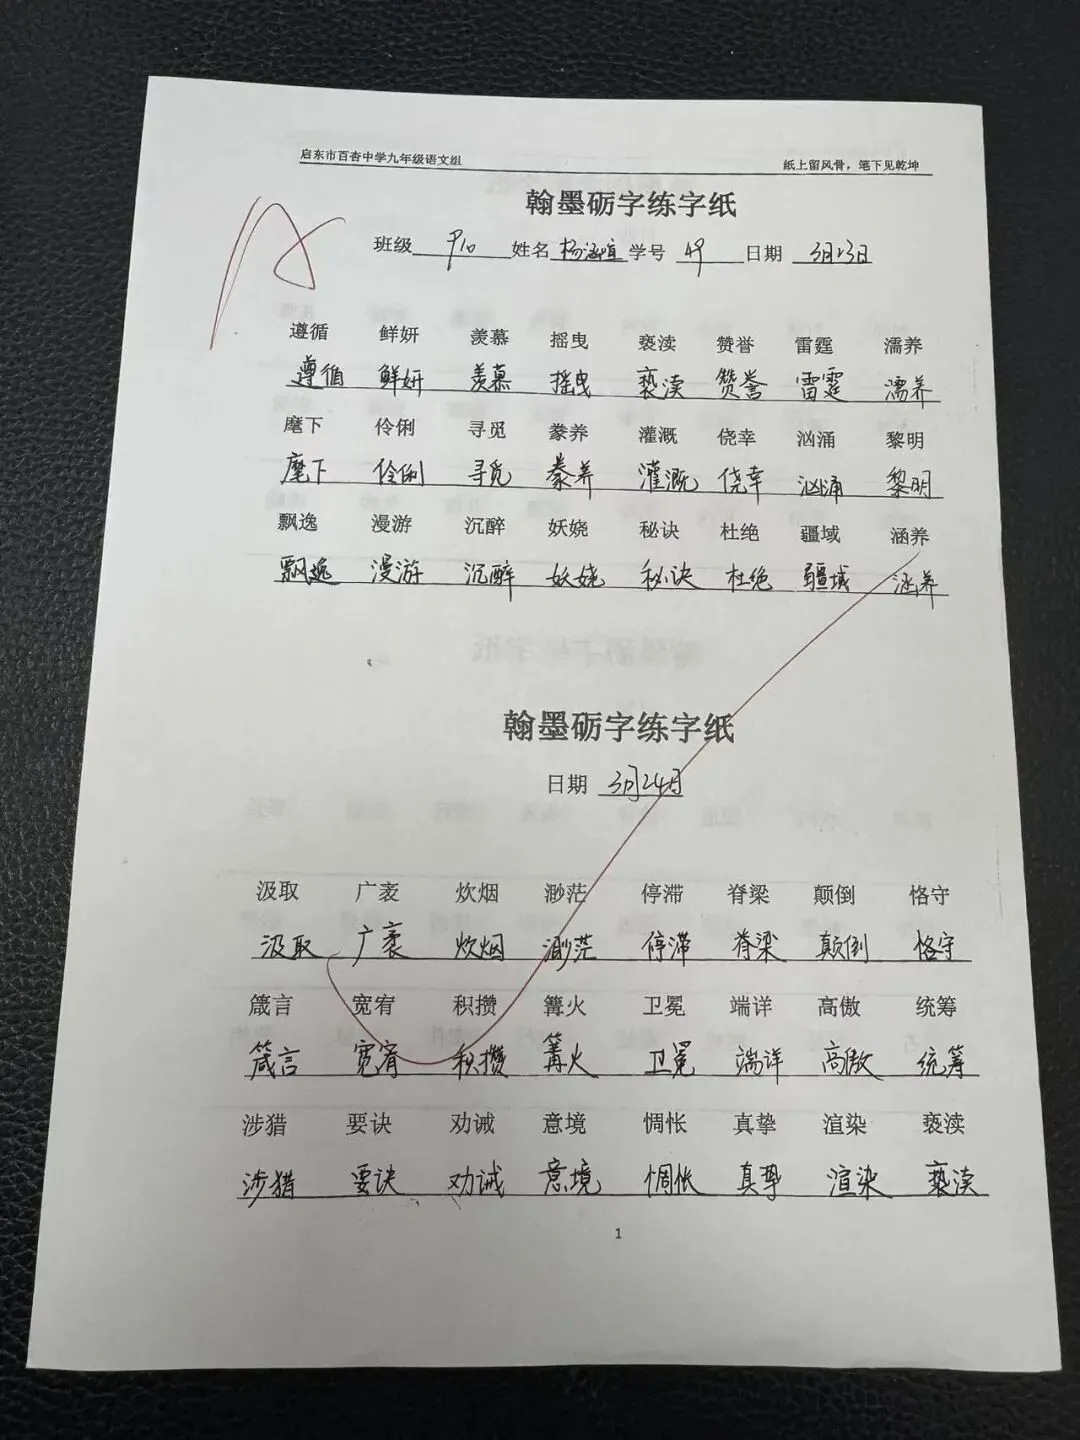 启东市百杏中学九年级语文组 纸上留风骨，笔下见乾坤
翰墨砺字练字纸
班级 姓名 学号 日期 3月23日
遵循 鲜妍 羡慕 摇曳 亵渎 赞誉 雷霆 濡养
遵循 鲜妍 羡慕 摇曳 亵渎 赞誉 雷霆 濡养
麾下 伶俐 寻觅 豢养 灌溉 侥幸 汹涌 黎明
麾下 伶俐 寻觅 豢养 灌溉 侥幸 汹涌 黎明
飘逸 漫游 沉醉 妖娆 秘诀 杜绝 疆域 涵养
飘逸 漫游 沉醉 妖娆 秘诀 杜绝 疆域 涵养
翰墨砺字练字纸
日期 3月24日
汲取 广袤 炊烟 渺茫 停滞 脊梁 颠倒 恪守
汲取 广袤 炊烟 渺茫 停滞 脊梁 颠倒 恪守
箴言 宽宥 积攒 篝火 卫冕 端详 高傲 统筹
箴言 宽宥 积攒 篝火 卫冕 端详 高傲 统筹
涉猎 要诀 劝诫 意境 惆怅 真挚 渲染 亵渎
涉猎 要诀 劝诫 意境 惆怅 真挚 渲染 亵渎
1